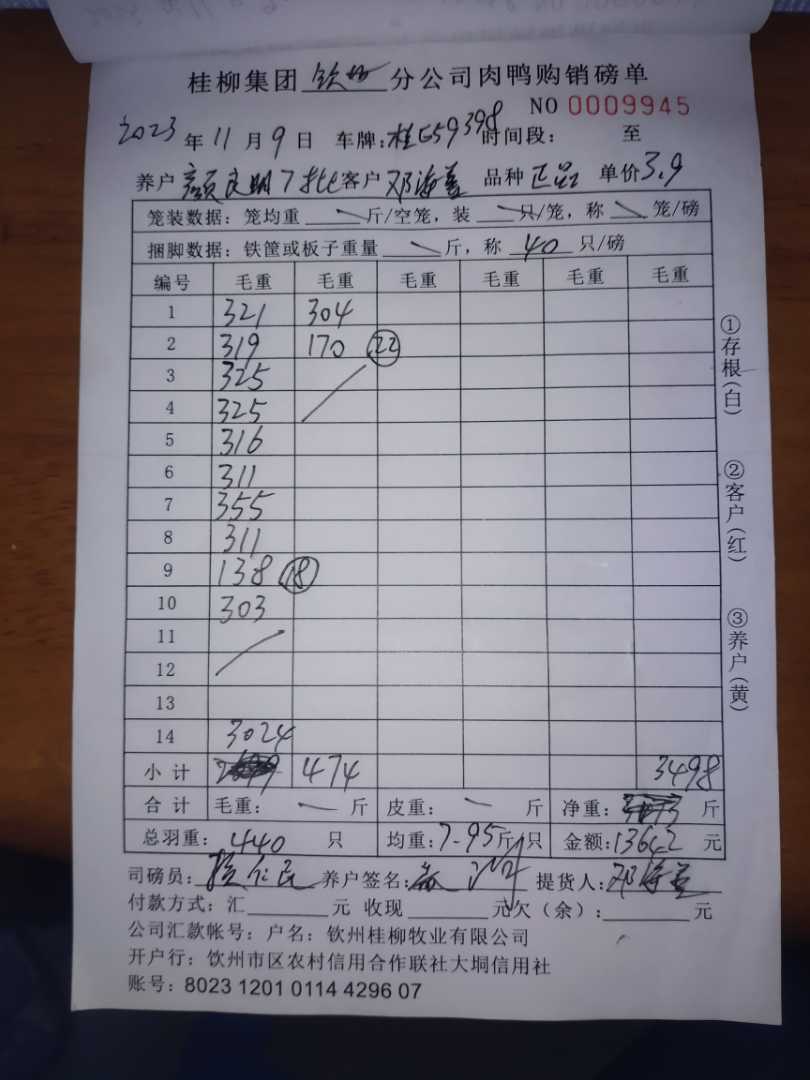 桂柳集团 钦州 分公司肉鸭购销磅单
NO 0009945
2023 年 11 月 9 日 车牌:桂G59398 时间段: 至
养户 颜良明7批 客户 邓海 品种 正品 单价 3.9
笼装数据: 笼均重 斤/空笼, 装 只/笼, 称 笼/磅
捆脚数据: 铁筐或板子重量 斤, 称 40 只/磅
编号 毛重 毛重 毛重 毛重 毛重 毛重
1 321 304
2 319 170 22
3 325
4 325
5 316
6 311
7 355
8 311
9 138 18
10 303
11
12
13
14 3024
小计 474 3498
合计 毛重: 斤 皮重: 斤 净重: 斤
总羽重: 440 只 均重: 7.95 斤/只 金额: 13642 元
司磅员: 仁民 养户签名: 提货人: 邓海
付款方式: 汇 元 收现 元欠(余): 元
公司汇款帐号: 户名: 钦州桂柳牧业有限公司
开户行: 钦州市区农村信用合作联社大垌信用社
账号: 8023 1201 0114 4296 07
①存根(白)
②客户(红)
③养户(黄)